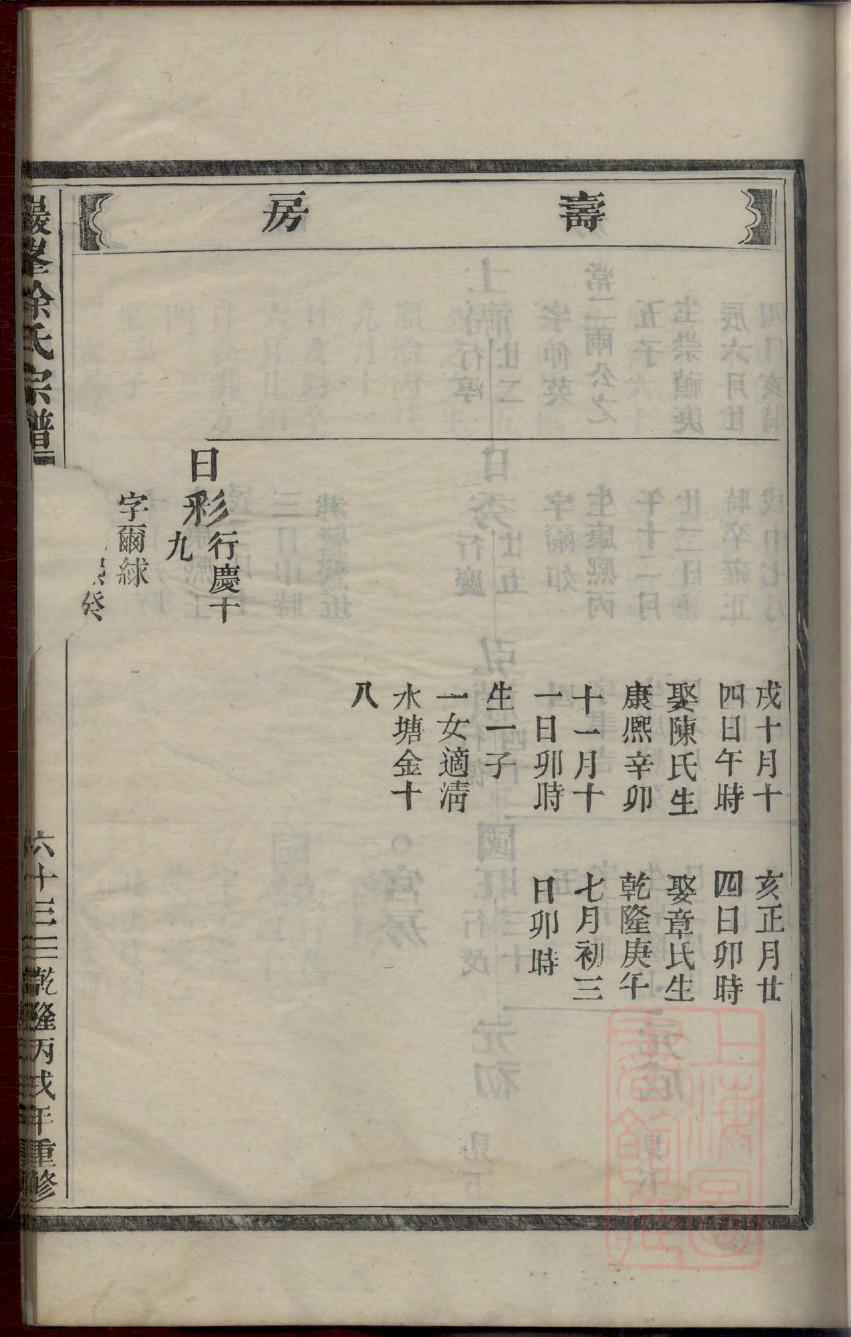 壽房
戌十月十
四日午時
娶陳氏生
康熈辛卯
十一月十
一日卯時
生一子
一女適清
水塘金十
八
亥正月廿
四日卯時
娶章氏生
乾隆庚午
七月初三
日卯時
日彩行慶十
九
字爾絿
癸
巖峯徐氏宗譜
六十三
乾隆丙戌年重修